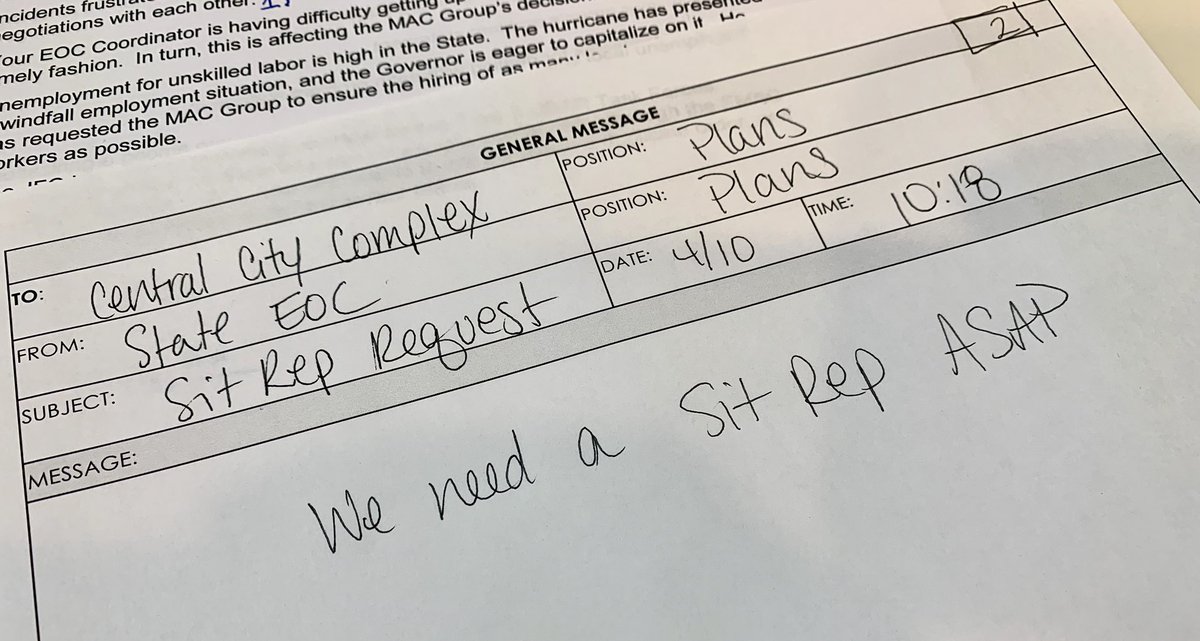 ncidents
egotiations with each other.
our EOC Coordinator is having difficulty getting
mely fashion. In turn, this is affecting the MAC Group's
nemployment for unskilled labor is high in the State. The hurricane has
windfall employment situation, and the Governor is eager to capitalize on it.
as requested the MAC Group to ensure the hiring of as
orkers as possible.
2
GENERAL MESSAGE
TO: Central City Complex POSITION: Plans
FROM: State EOC POSITION: Plans
SUBJECT: Sit Rep Request DATE: 4/10 TIME: 10:18
MESSAGE:
We need a Sit Rep ASAP